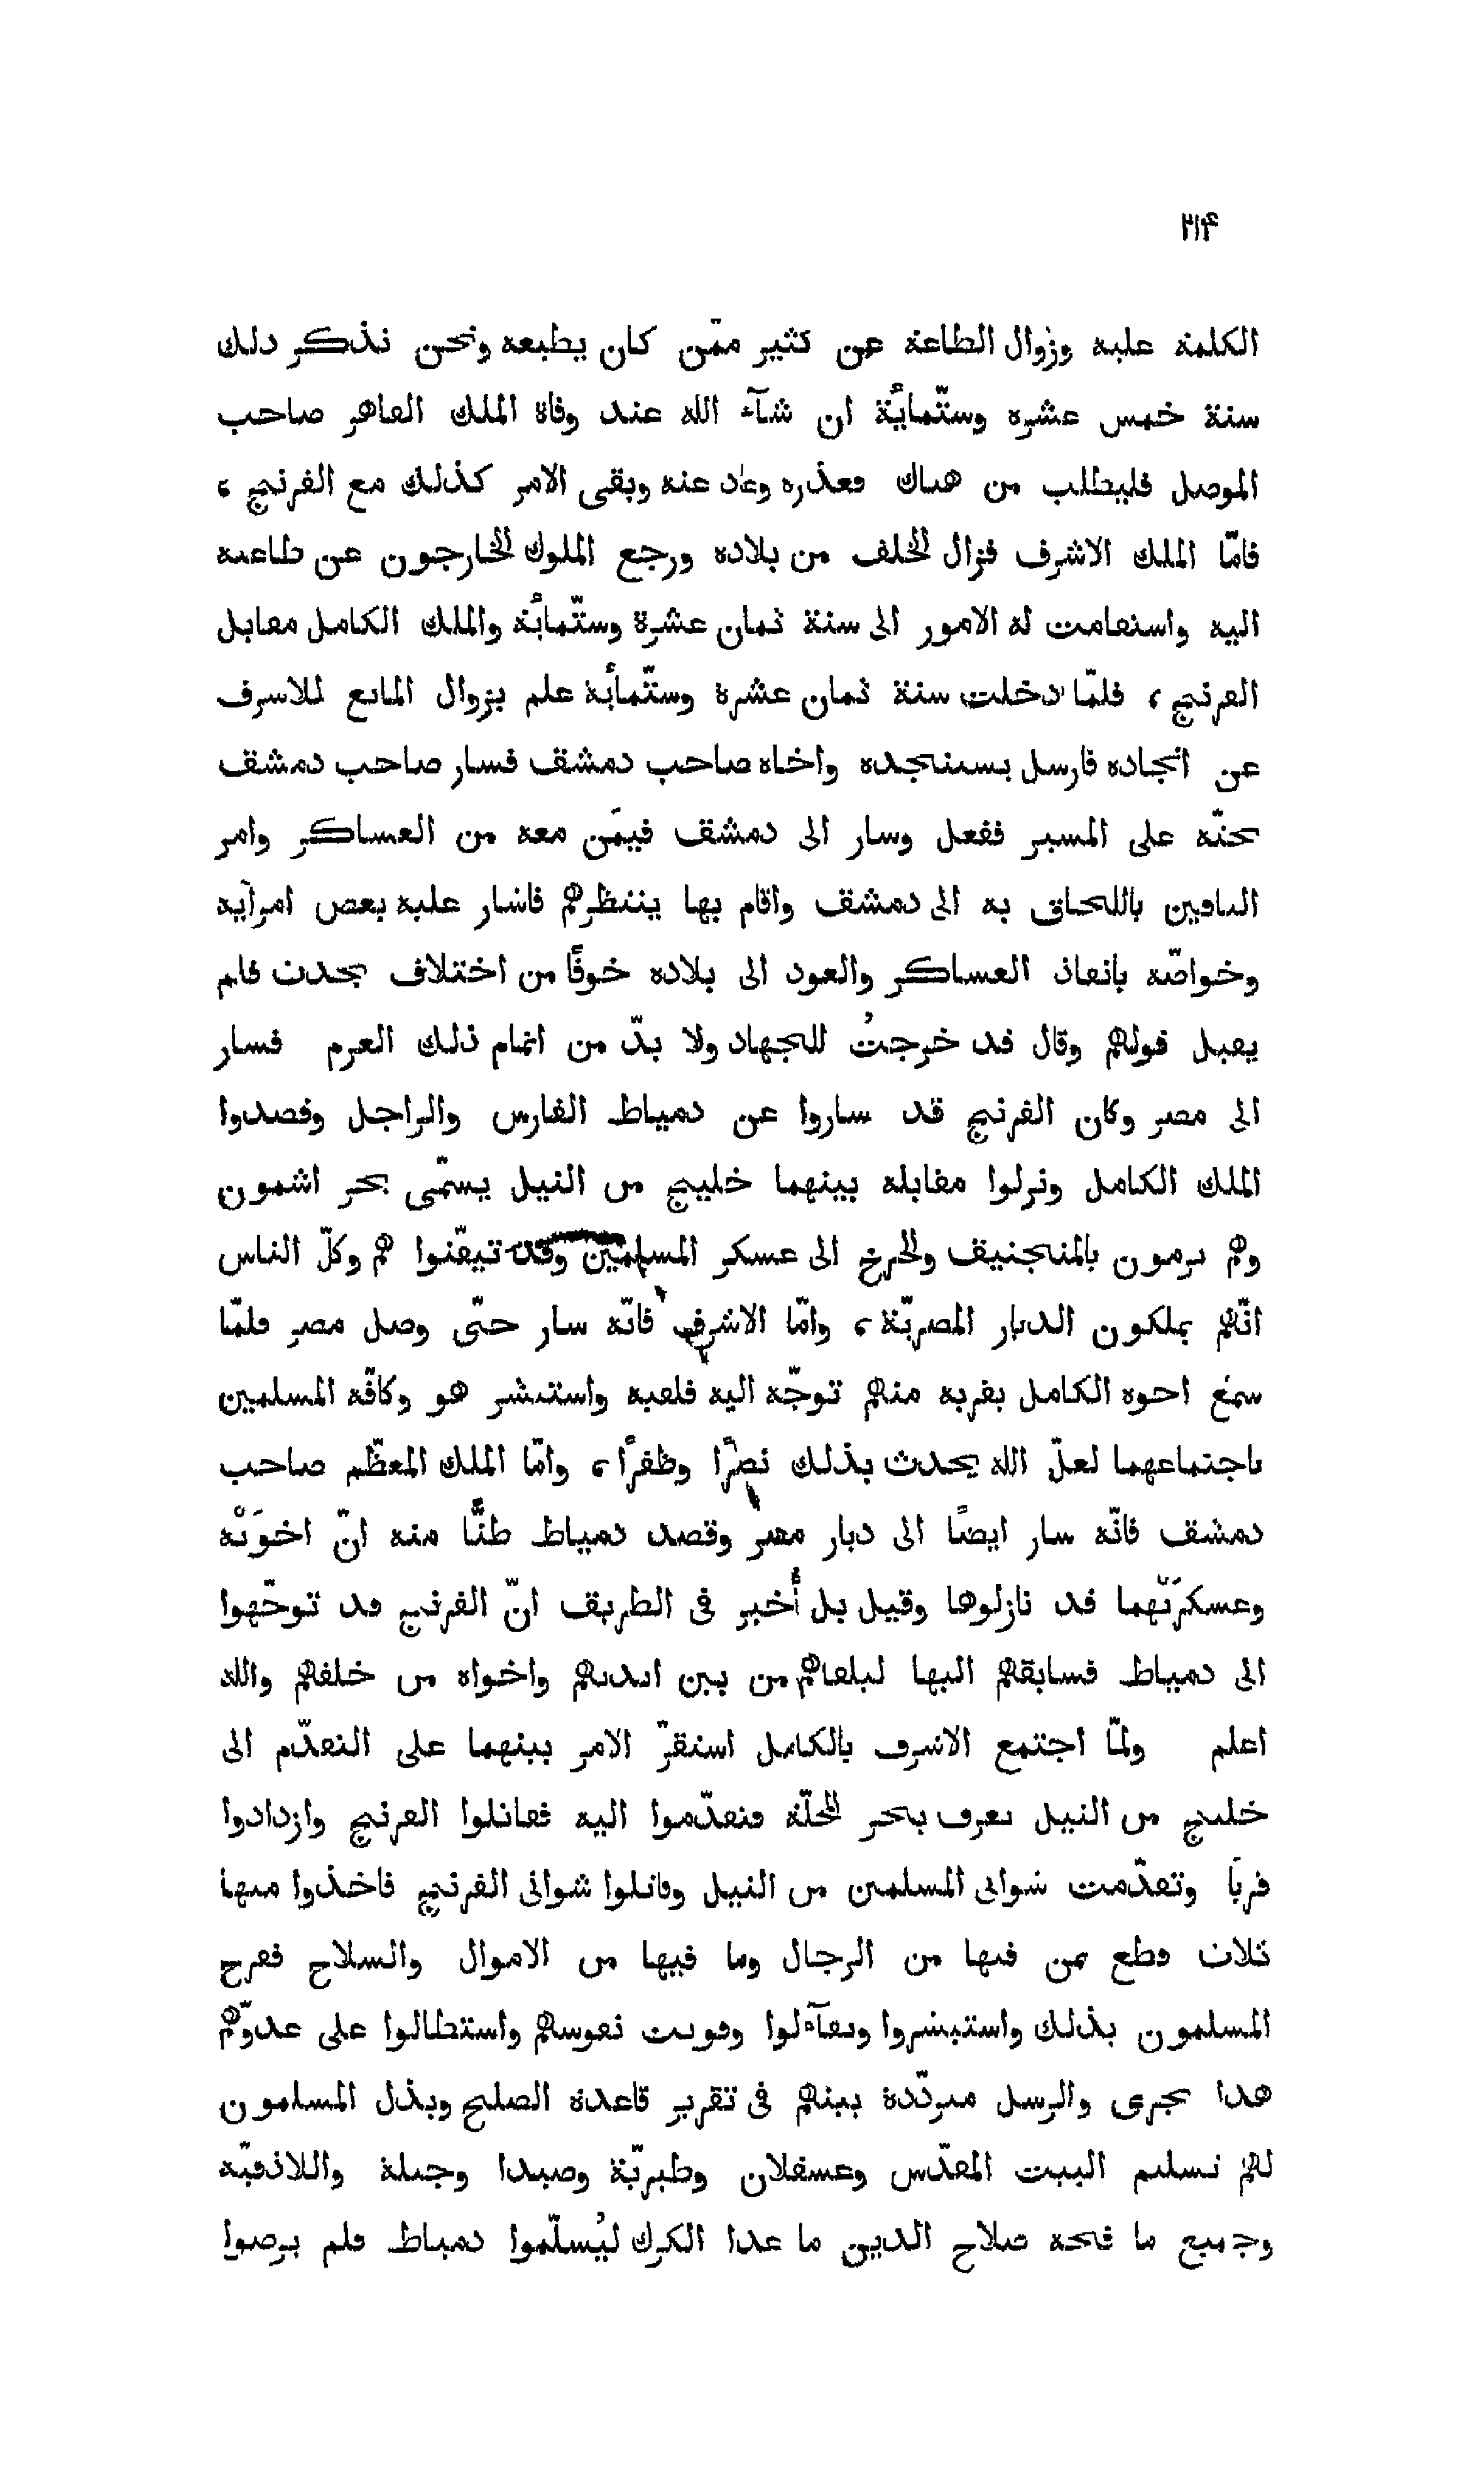 ٢١٤
الكلمة عليه وزوال الطاعة عن كثير ممّن كان يطيعه ونحن نذكر ذلك
سنة خمس عشره وستّمائة ان شآء الله عند وفاة الملك القاهر صاحب
الموصل فليطلب من هناك فعذره وعاد عنه وبقى الامر كذلك مع الفرنج ،
فامّا الملك الاشرف فزال الخلف من بلاده ورجع الملوك الخارجون عن طاعته
اليه واستقامت له الامور الى سنة ثمان عشرة وستّمائة والملك الكامل مقابل
الفرنج ، فلمّا دخلت سنة ثمان عشرة وستّمائة علم بزوال المانع للاشرف
عن انجاده فارسل يستنجده واخاه صاحب دمشق فسار صاحب دمشق
يحثّه على المسير ففعل وسار الى دمشق فيمَن معه من العساكر وامر
الباقين باللحاق به الى دمشق واقام بها ينتظرهم فاشار عليه بعض امرآيه
وخواصّه بانفاذ العساكر والعود الى بلاده خوفًا من اختلاف يحدث فلم
يقبل قولهم وقال قد خرجتُ للجهاد ولا بدّ من اتمام ذلك العزم فسار
الى مصر وكان الفرنج قد ساروا عن دمياط الفارس والراجل وقصدوا
الملك الكامل ونزلوا مقابله بينهما خليج من النيل يسمّى بحر اشمون
وهم يرمون بالمنجنيق والجرخ الى عسكر المسلمين وقد تيقّنوا هم وكلّ الناس
انّهم يملكون الديار المصريّة ، وامّا الاشرف فانّه سار حتّى وصل مصر فلمّا
سمع اخوه الكامل بقربه منهم توجّه اليه فلقيه واستبشر هو وكافّه المسلمين
باجتماعهما لعلّ الله يحدث بذلك نصرًا وظفرًا ، وامّا الملك المعظّم صاحب
دمشق فانّه سار ايضًا الى ديار مصر وقصد دمياط ظنًّا منه انّ اخوَيْه
وعسكرَيْهما قد نازلوها وقيل بل أُخبر فى الطريق انّ الفرنج قد توجّهوا
الى دمياط فسابقهم اليها ليلقاهم من بين ايديهم واخواه من خلفهم والله
اعلم ولمّا اجتمع الاشرف بالكامل استقرّ الامر بينهما على التقدّم الى
خليج من النيل يعرف ببحر المحلّة فتقدّموا اليه فقاتلوا الفرنج وازدادوا
قربًا وتقدّمت شوانى المسلمين من النيل وقاتلوا شوانى الفرنج فاخذوا منها
ثلاث قطع بمن فيها من الرجال وما فيها من الاموال والسلاح ففرح
المسلمون بذلك واستبشروا وتفآءلوا وقويت نفوسهم واستطالوا على عدوّهم
هذا يجرى والرسل متردّدة بينهم فى تقرير قاعدة الصلح وبذل المسلمون
لهم تسليم البيت المقدّس وعسقلان وطبريّة وصيدا وجبلة واللاذقيّه
وجميع ما فتحه صلاح الدين ما عدا الكرك ليُسلّموا دمياط فلم يرضوا